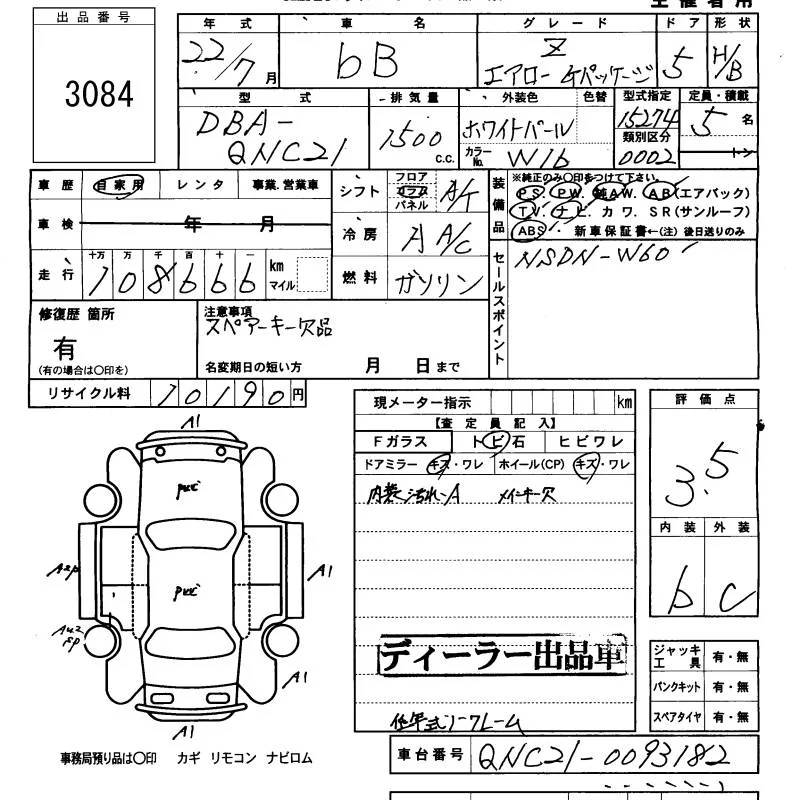 主催者用
出品番号
3084
年式 車名 グレード ドア 形状
22/7月 bB Z エアロ-Gパッケージ 5 H/B
型式 排気量 外装色 色替 型式指定 定員・積載
DBA-QNC21 1500 c.c. ホワイトパール 15274 5名
カラーNo. W16 類別区分 0002 トン
車歴 自家用 レンタ 事業.営業車
シフト フロア コラム パネル A/T
装備品 ※純正のみ〇印をつけて下さい。
PS. PW. 純AW. AB(エアバック)
TV. ナビ. カワ. SR(サンルーフ)
ABS 新車保証書←(注)後日送りのみ
車検 年 月
冷房 A A/C
走行 十万 万 千 百 十 一
108666 km マイル
燃料 ガソリン
セールスポイント NSDN-W60
修復歴 箇所
有
(有の場合は〇印を)
注意事項
スペアーキー欠品
名変期日の短い方 月 日まで
リサイクル料 10190円
現メーター指示 km
【査定員記入】
Fガラス トビ石 ヒビワレ
ドアミラー キズ・ワレ ホイール(CP) キズ・ワレ
内装汚れ-A メインキー欠
評価点
3.5
内装 外装
b c
A1
A2P
A1
A1
A1
ディーラー出品車
ジャッキ工具 有・無
パンクキット 有・無
スペアタイヤ 有・無
事務局預り品は〇印 カギ リモコン ナビロム
車台番号 QNC21-0093182